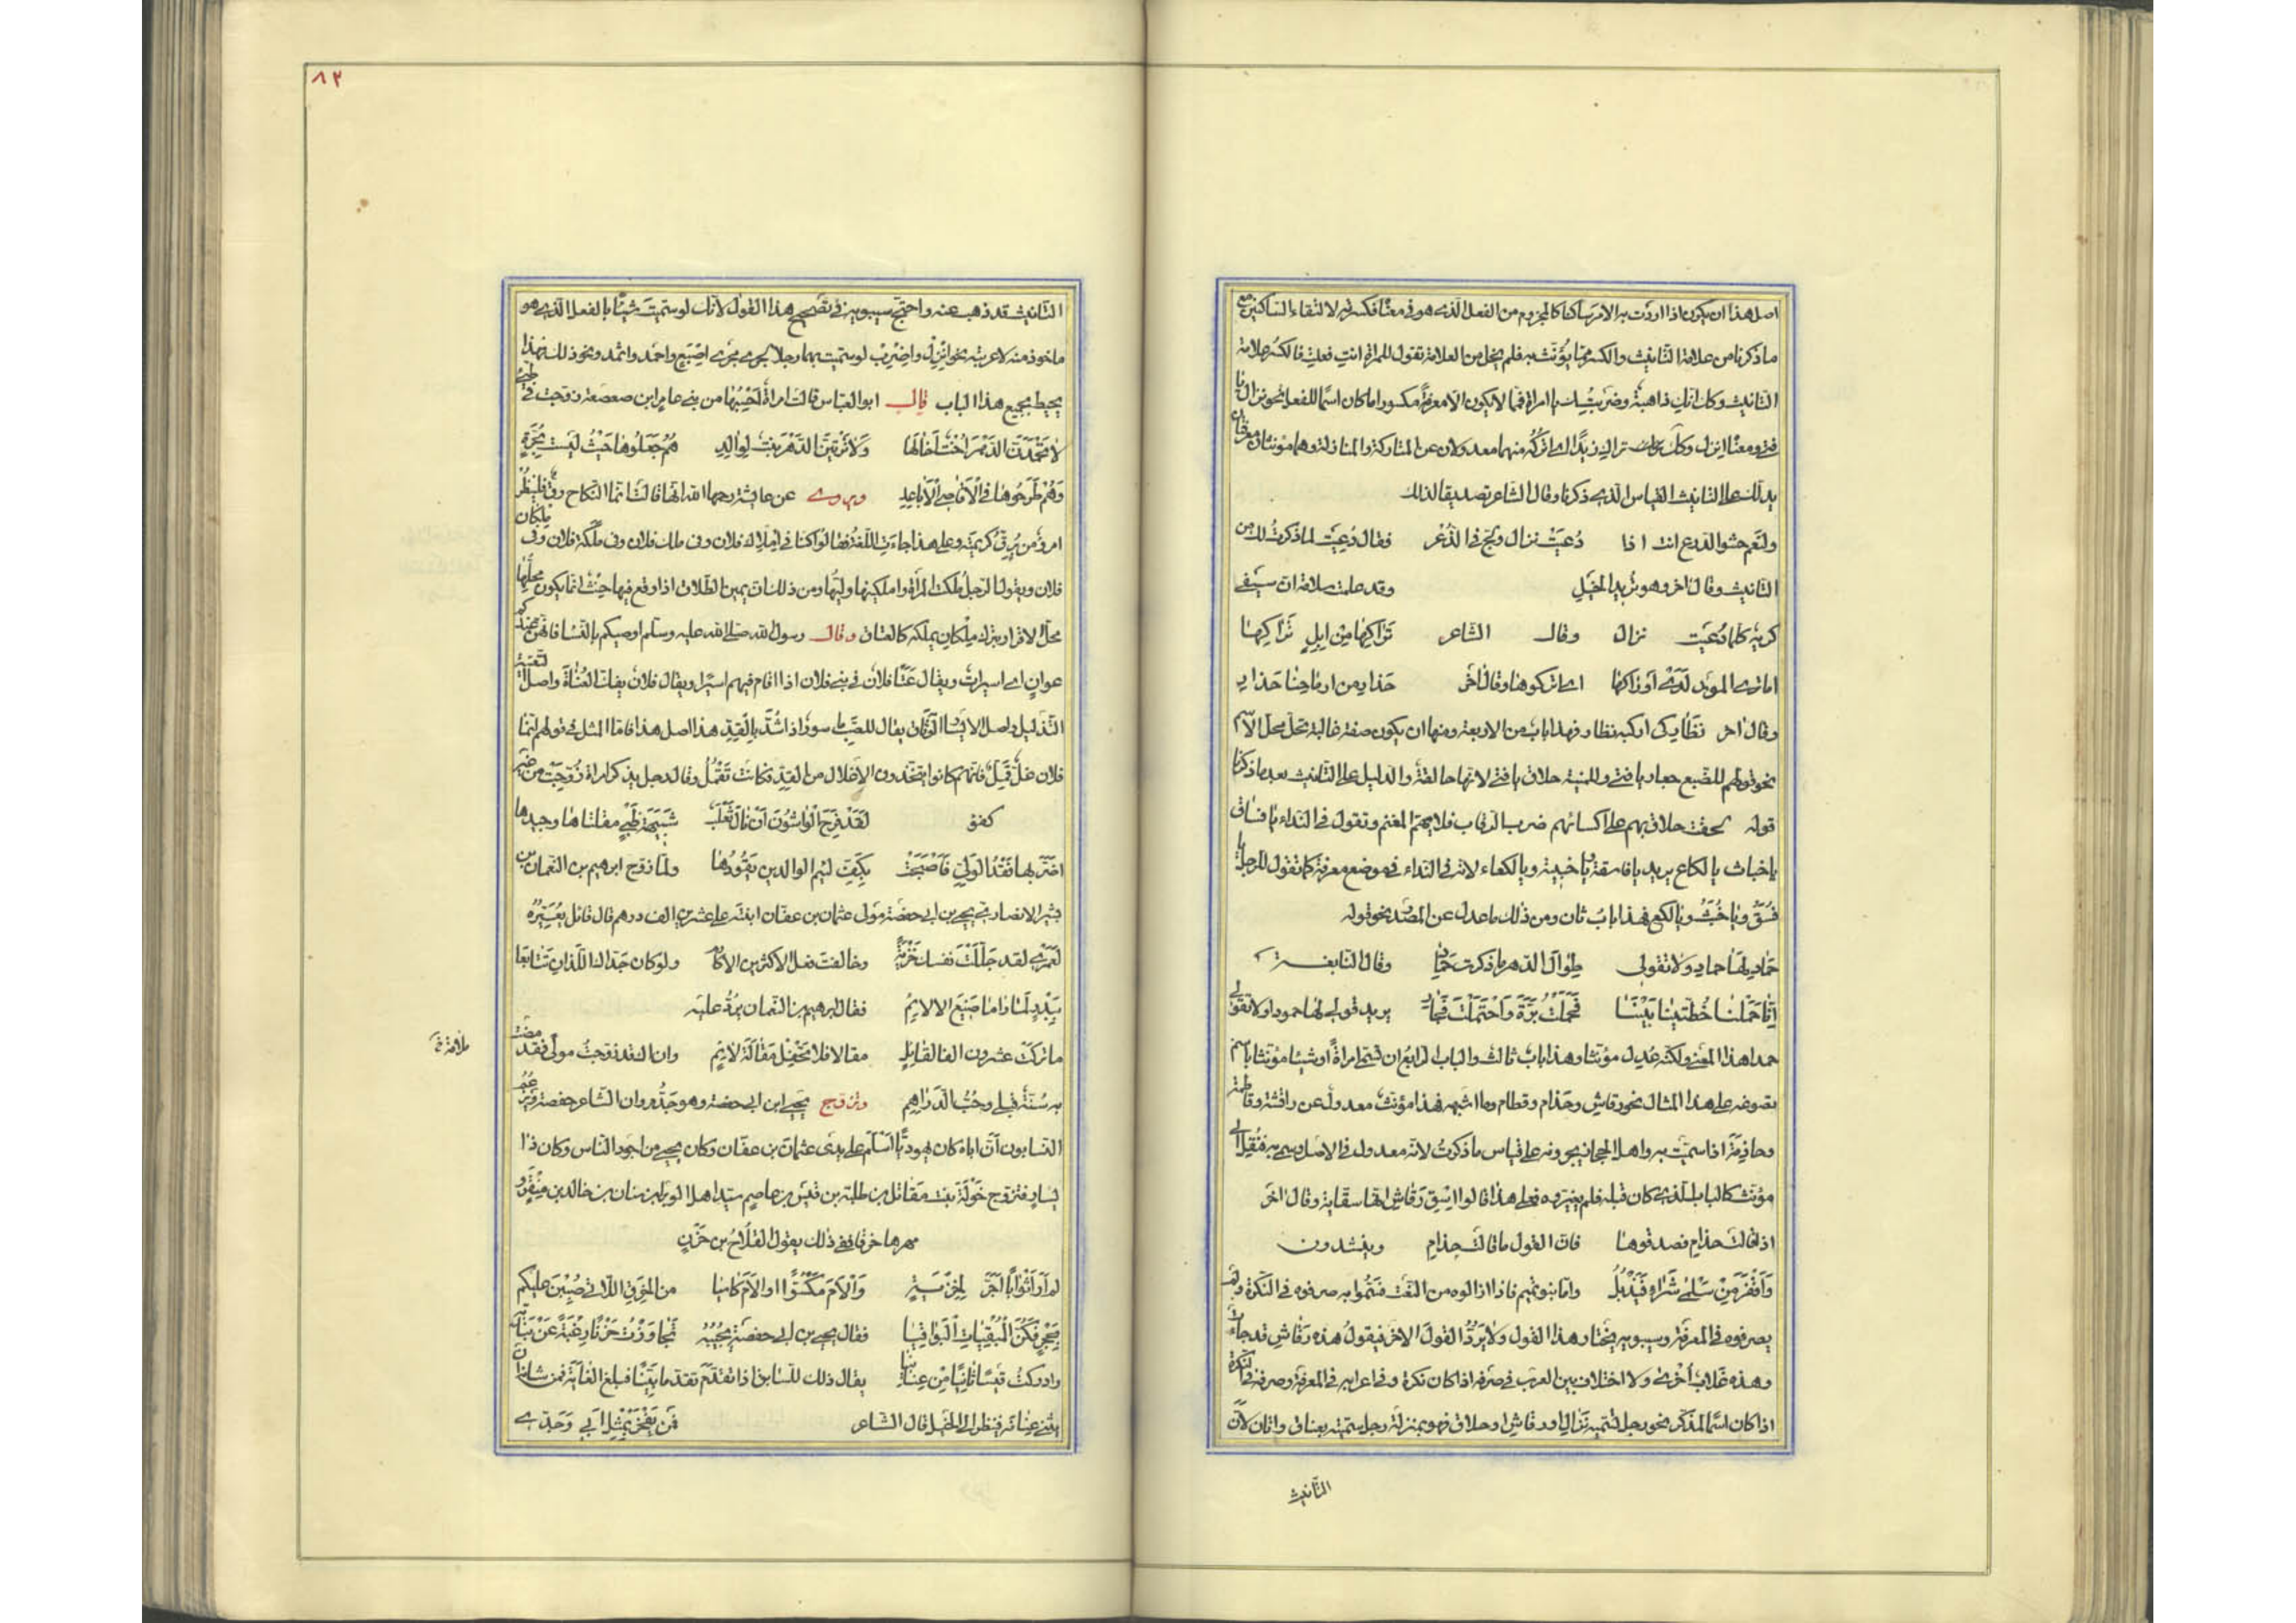 اصل هذا ان يكون اذا اردت به الامر ساكنا كالمجزوم من الفعل الذى هو فى معناه فكسرته لالتقاء الساكنين مع
ما ذكرنا من علامة التانيث والكسر مما يؤنث به فلم يخل من العلامة تقول للمراة انت فعلت فالكسر علامة
التانيث وكك انك ذاهبة وضربتك يا امراة فمما لا يكون الا معرفة مكسورا ما كان اسما للفعل نحو نزال يا
فتى ومعناه انزل وكك تراك زيدا اى اتركه فهما معدولان عن المتاركة والمنازلة وهما مؤنثان معرفتان
يدلك على التانيث القياس الذى ذكرنا وقال الشاعر تصديقا لذلك
ولنعم حشو الدرع انت اذا دعيت نزال ولج فى الذعر فقال دعيت لما ذكرت لك من
التانيث وقال اخر وهو زيد الخيل وقد علمت سلامة ان سيفى
كريه كلما دعيت نزال وقال الشاعر تراكها من ابل تراكها
اما ترى الموت لدى اوراكها اى اتركوها وقال اخر حذار من ارماحنا حذار
وقال اخر نظار كى اركبه نظار فهذا باب من الاربعة ومنها ان يكون صفة غالبة تحل محل الاسم
نحو قولهم للضبع جعار يا فتى وللمنية حلاق يا فتى لانها حالقة والدليل على التانيث بعد ما ذكرنا
قوله لحقت حلاق بهم على اكسائهم ضرب الرقاب فلا يهم المغنم وتقول فى النداء يا فساق
يا خباث يا لكاع يريد يا فاسقة ويا خبيثة ويا لكعاء لانه فى النداء فى موضع معرفة كما تقول للرجل يا
فسق ويا خبث ويا لكع فهذا باب ثان ومن ذلك ما عدل عن المصدر نحو قوله
جماد لها جماد ولا تقولى طوال الدهر ما ذكرت حماد وقال النابغة
انا حملنا خطتينا بيننا فحملت برة واحتملت فجار يريد قولى لها جمودا ولا تقولى
حمدا هذا المعنى ولكنه عدل مؤنثا وهذا باب ثالث والباب الرابع ان تسمى امراة او شيئا مؤنثا باسم
تصوغه على هذا المثال نحو رقاش وحذام وقطام وما اشبهه فهذا مؤنث معدول عن راقشة وقاطمة
وحاذمة اذا سميت به واهل الحجاز يجرونه على قياس ما ذكرت لانه معدول فى الاصل وسمى به فنقل الى
مؤنث كالباب الذى كان قبله فلم يغيروه فعلى هذا قالوا اسق رقاش انها سقاية وقال اخر
اذا قالت حذام فصدقوها فان القول ما قالت حذام وينشدون
واقفر من سلمى شراء فيذبل واما بنو تميم فاذا ازالوه من النعت فسموا به صرفوه فى النكرة ولم
يصرفوه فى المعرفة وسيبويه يختار هذا القول ولا يرد القول الاخر فيقول هذه رقاش قد جاءت
وهذه غلاب اخرى ولا اختلاف بين العرب فى صرفه اذا كان نكرة وفى اعرابه فى المعرفة وصرفه فى النكرة
اذا كان اسما لمذكر نحو رجل تسميه نزال او رقاش او حلاق فهو بمنزلة رجل سميته بعناق واتان لان
التانيث
٨٢
التانيث قد ذهب عنه واحتج سيبويه فى تصحيح هذا القول لانك لو سميت شيئا بالفعل الذى هو
ماخوذ منه لاعربته نحو انزل واضرب لو سميت بهما رجلا يجرى مجرى اصبع واحمد واثمد ونحو ذلك فهذا
يحيط بجميع هذا الباب قال ابو العباس قالت امراة احسبها من بنى عامر ابن صعصعة زوجت فى طيئ
لا تحمدن الدهر اخت اخا لها ولا ترثين الدهر بنت لوالد هم جعلوها حيث ليست بحرة
وهم طرحوها فى الاقاصى الاباعد ويروى عن عايشة رحمها الله انها قالت انما النكاح رق فلينظر
امرؤ من يرق كريمته وعلى هذا جاءت اللغة فقالوا كنا فى املاك فلان وفى ملك فلان وفى ملكة فلان وفى ملكان
فلان ويقول الرجل ملكت المراة واملكنيها وليها ومن ذلك ان يمين الطلاق اذا وقع فيها حنث انما يكون محلها
محل الاقرار بترك ما كان يملكه كالعتاق وقال رسول الله صلى الله عليه وسلم اوصيكم بالنساء فانهن عندكم
عوان اى اسيرات ويقال عنا فلان فى بنى فلان اذا اقام فيهم اسيرا ويقال فلان يفك العناة واصل التعنية
التذليل واصل الاسار الوثاق يقال للقتب ماسور اذا شد بالقد هذا اصل هذا فاما المثل فى قولهم انما
فلان غل قمل فانهم كانوا يتخذون الاغلال من القد فكانت تقمل وقال رجل يذكر امراة زوجت من غير
كفو لقد فرح الواشون ان نال ثعلب شبيهة ظبى مقلتاها وجيدها
اضر بها فقد الولى فاصبحت بكف لئيم الوالدين يقودها ولما زوج ابرهيم بن النعمان بن
بشير الانصارى يحيى بن ابى حفصة مولى عثمان بن عفان ابنته على عشرين الف درهم قال قائل يعيره
لعمرى لقد جللت نفسك خزية وخالفت فعل الاكثرين الاكارم ولو كان جداك اللذان تتابعا
ببدر لما راما صنيع الالائم فقال ابرهيم بن النعمان يرد عليه
ما تركت عشرون الفا لقائل مقالا فلا تحفل مقالة لائم وان اك قد زوجت مولى فقد مضت
به سنة قبلى وحب الدراهم وتزوج يحيى ابن ابى حفصة وهو جد مروان الشاعر حفصة ويزعم
النسابون ان اباه كان يهوديا اسلم على يدى عثمان بن عفان وكان يحيى من اجود الناس وكان ذا
يسار فتزوج خولة بنت مقاتل بن طلبة بن قيس بن عاصم سيد اهل الوبر ابن سنان بن خالد بن منقر و
مهرها خرقا ففى ذلك يقول القلاخ بن حزن
لم ار اثوابا اجر لخزية والام مكسوا والام كاسيا من الخرق اللاتى صببن عليكم
بحجر فكن المبقيات البواقيا فقال يحيى بن ابى حفصة يجيبه تجاوزت حزنا رغبة عن بناته
وادركت قيسا ثانيا من عنانيا يقال ذلك للسابق اذا تقدم تقدما بينا فبلغ الغاية فمن شانه ان
يثنى عنانه فينظر الى الخيل قال الشاعر فمن يفخر بمثل ابى وجدى